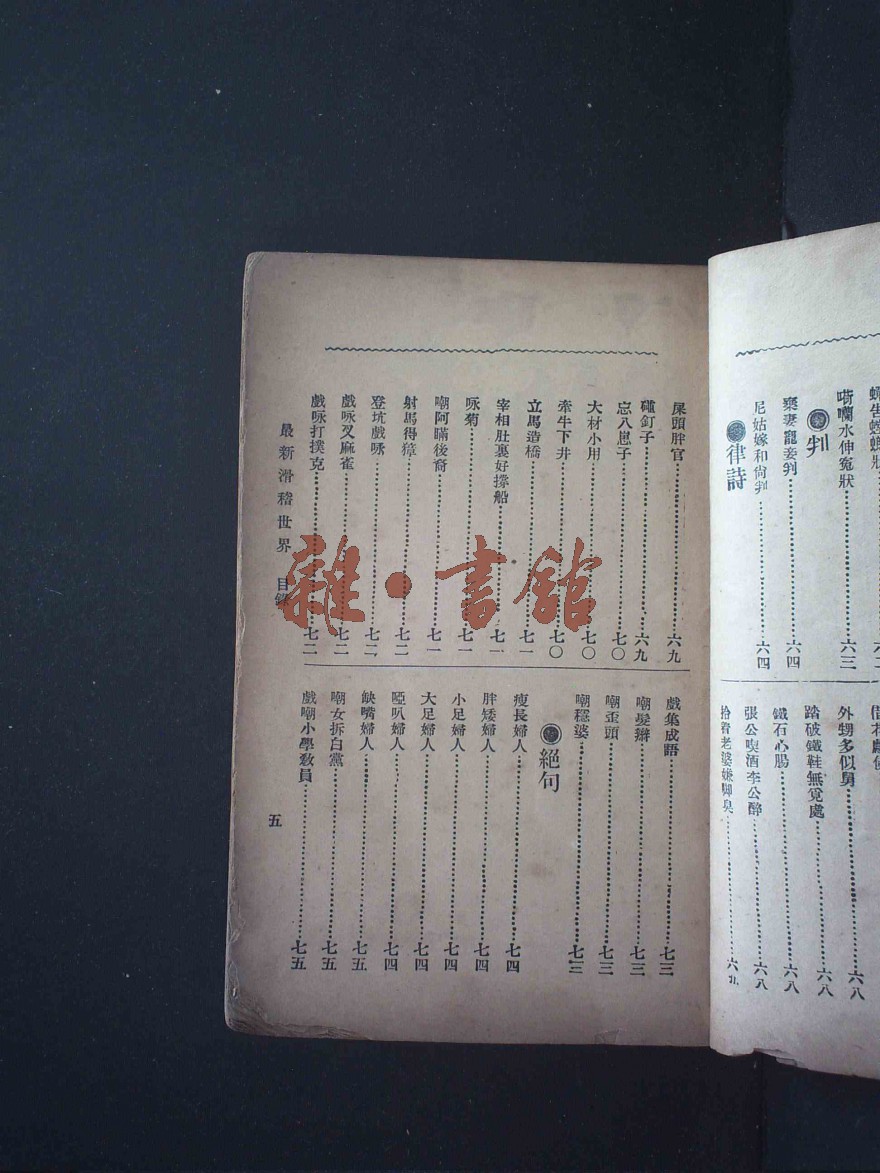 嗬囒水伸寃狀⋯⋯六三
判
棄妻寵妾判⋯⋯六四
尼姑嫁和尙判⋯⋯六四
律詩
外甥多似舅⋯⋯六八
踏破鐵鞋無覓處⋯⋯六八
鐵石心腸⋯⋯六八
張公喫酒李公醉⋯⋯六八
拾着老婆嫌脚臭⋯⋯六九
屎頭胖官⋯⋯六九
碰釘子⋯⋯六九
忘八崽子⋯⋯七〇
大材小用⋯⋯七〇
牽牛下井⋯⋯七〇
立馬造橋⋯⋯七一
宰相肚裏好撑船⋯⋯七一
咏菊⋯⋯七一
嘲阿瞞後裔⋯⋯七一
射馬得獐⋯⋯七二
登坑戲咏⋯⋯七二
戲咏叉麻雀⋯⋯七二
戲咏打撲克⋯⋯七二
戲集成語⋯⋯七三
嘲髮辮⋯⋯七三
嘲歪頭⋯⋯七三
嘲穩婆⋯⋯七三
絕句
瘦長婦人⋯⋯七四
胖矮婦人⋯⋯七四
小足婦人⋯⋯七四
大足婦人⋯⋯七四
啞叭婦人⋯⋯七四
缺嘴婦人⋯⋯七五
嘲女拆白黨⋯⋯七五
戲嘲小學敎員⋯⋯七五
最新滑稽世界 目錄
五
雜·書館